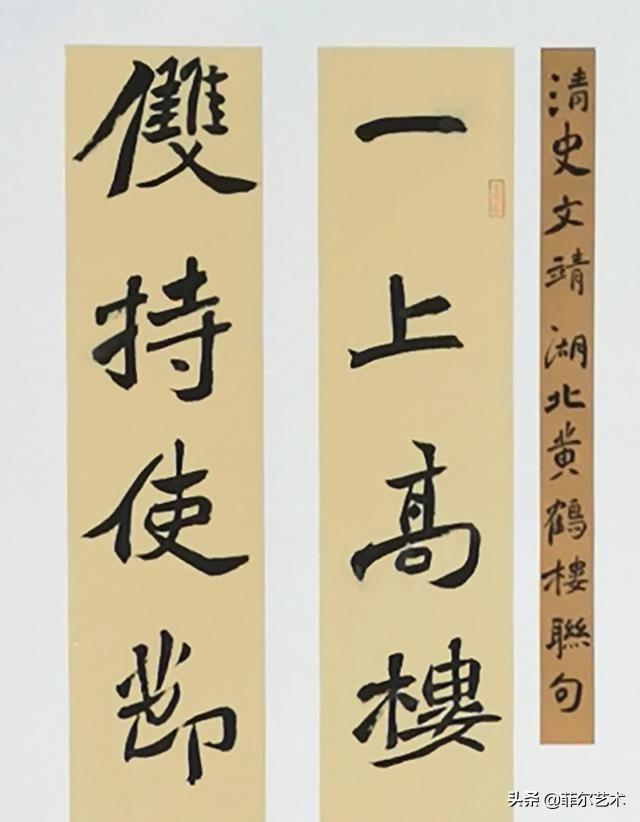 清史文靖 湖北黄鶴樓聯句
一上高樓
雙持使節
头条 @菲尔艺术